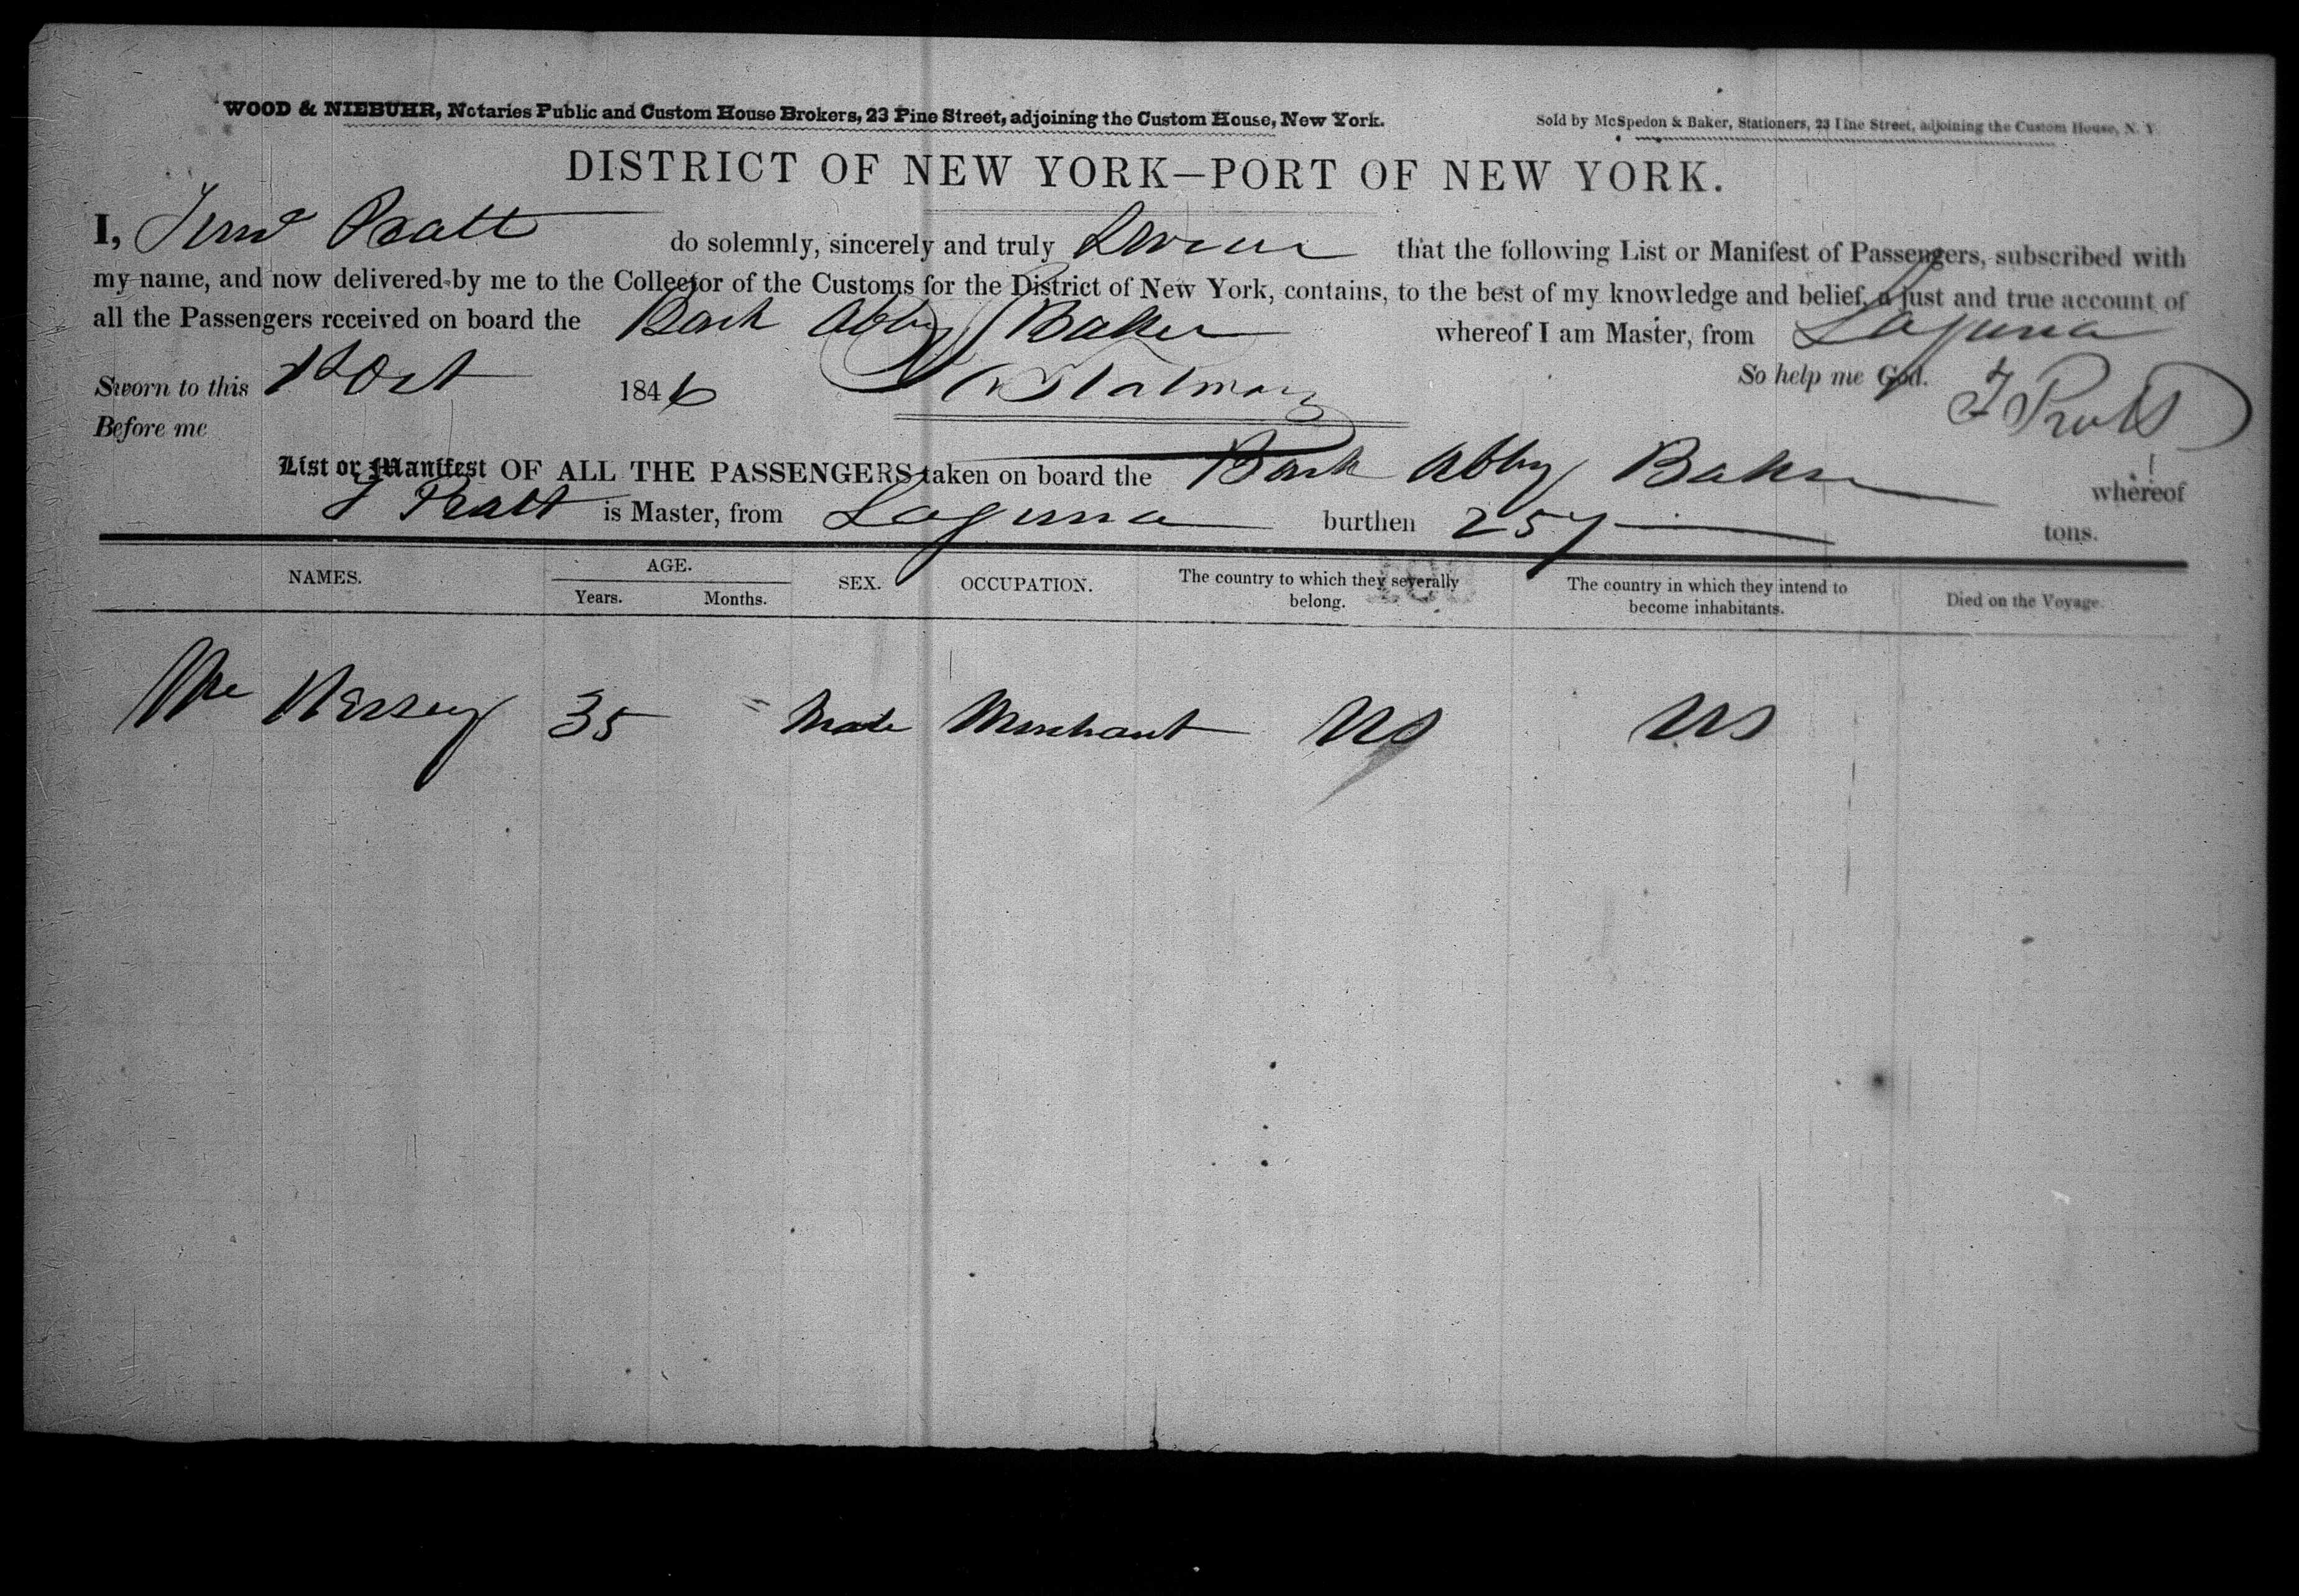 WOOD & NIEBUHR, Notaries Public and Custom House Brokers, 23 Pine Street, adjoining the Custom House, New York.
Sold by McSpedon & Baker, Stationers, 23 Pine Street, adjoining the Custom House, N. Y.
DISTRICT OF NEW YORK—PORT OF NEW YORK.
I, Pratt do solemnly, sincerely and truly that the following List or Manifest of Passengers, subscribed with
my name, and now delivered by me to the Collector of the Customs for the District of New York, contains, to the best of my knowledge and belief, a just and true account of
all the Passengers received on board the Bark Abby Baker whereof I am Master, from Laguna
Sworn to this Oct 1846 So help me God. F Pratt
Before me
List or Manifest OF ALL THE PASSENGERS taken on board the Bark Abby Baker whereof
F Pratt is Master, from Laguna burthen 257 tons.
NAMES. AGE. SEX. OCCUPATION. The country to which they severally belong. The country in which they intend to become inhabitants. Died on the Voyage.
Years. Months.
35 Male Merchant US US